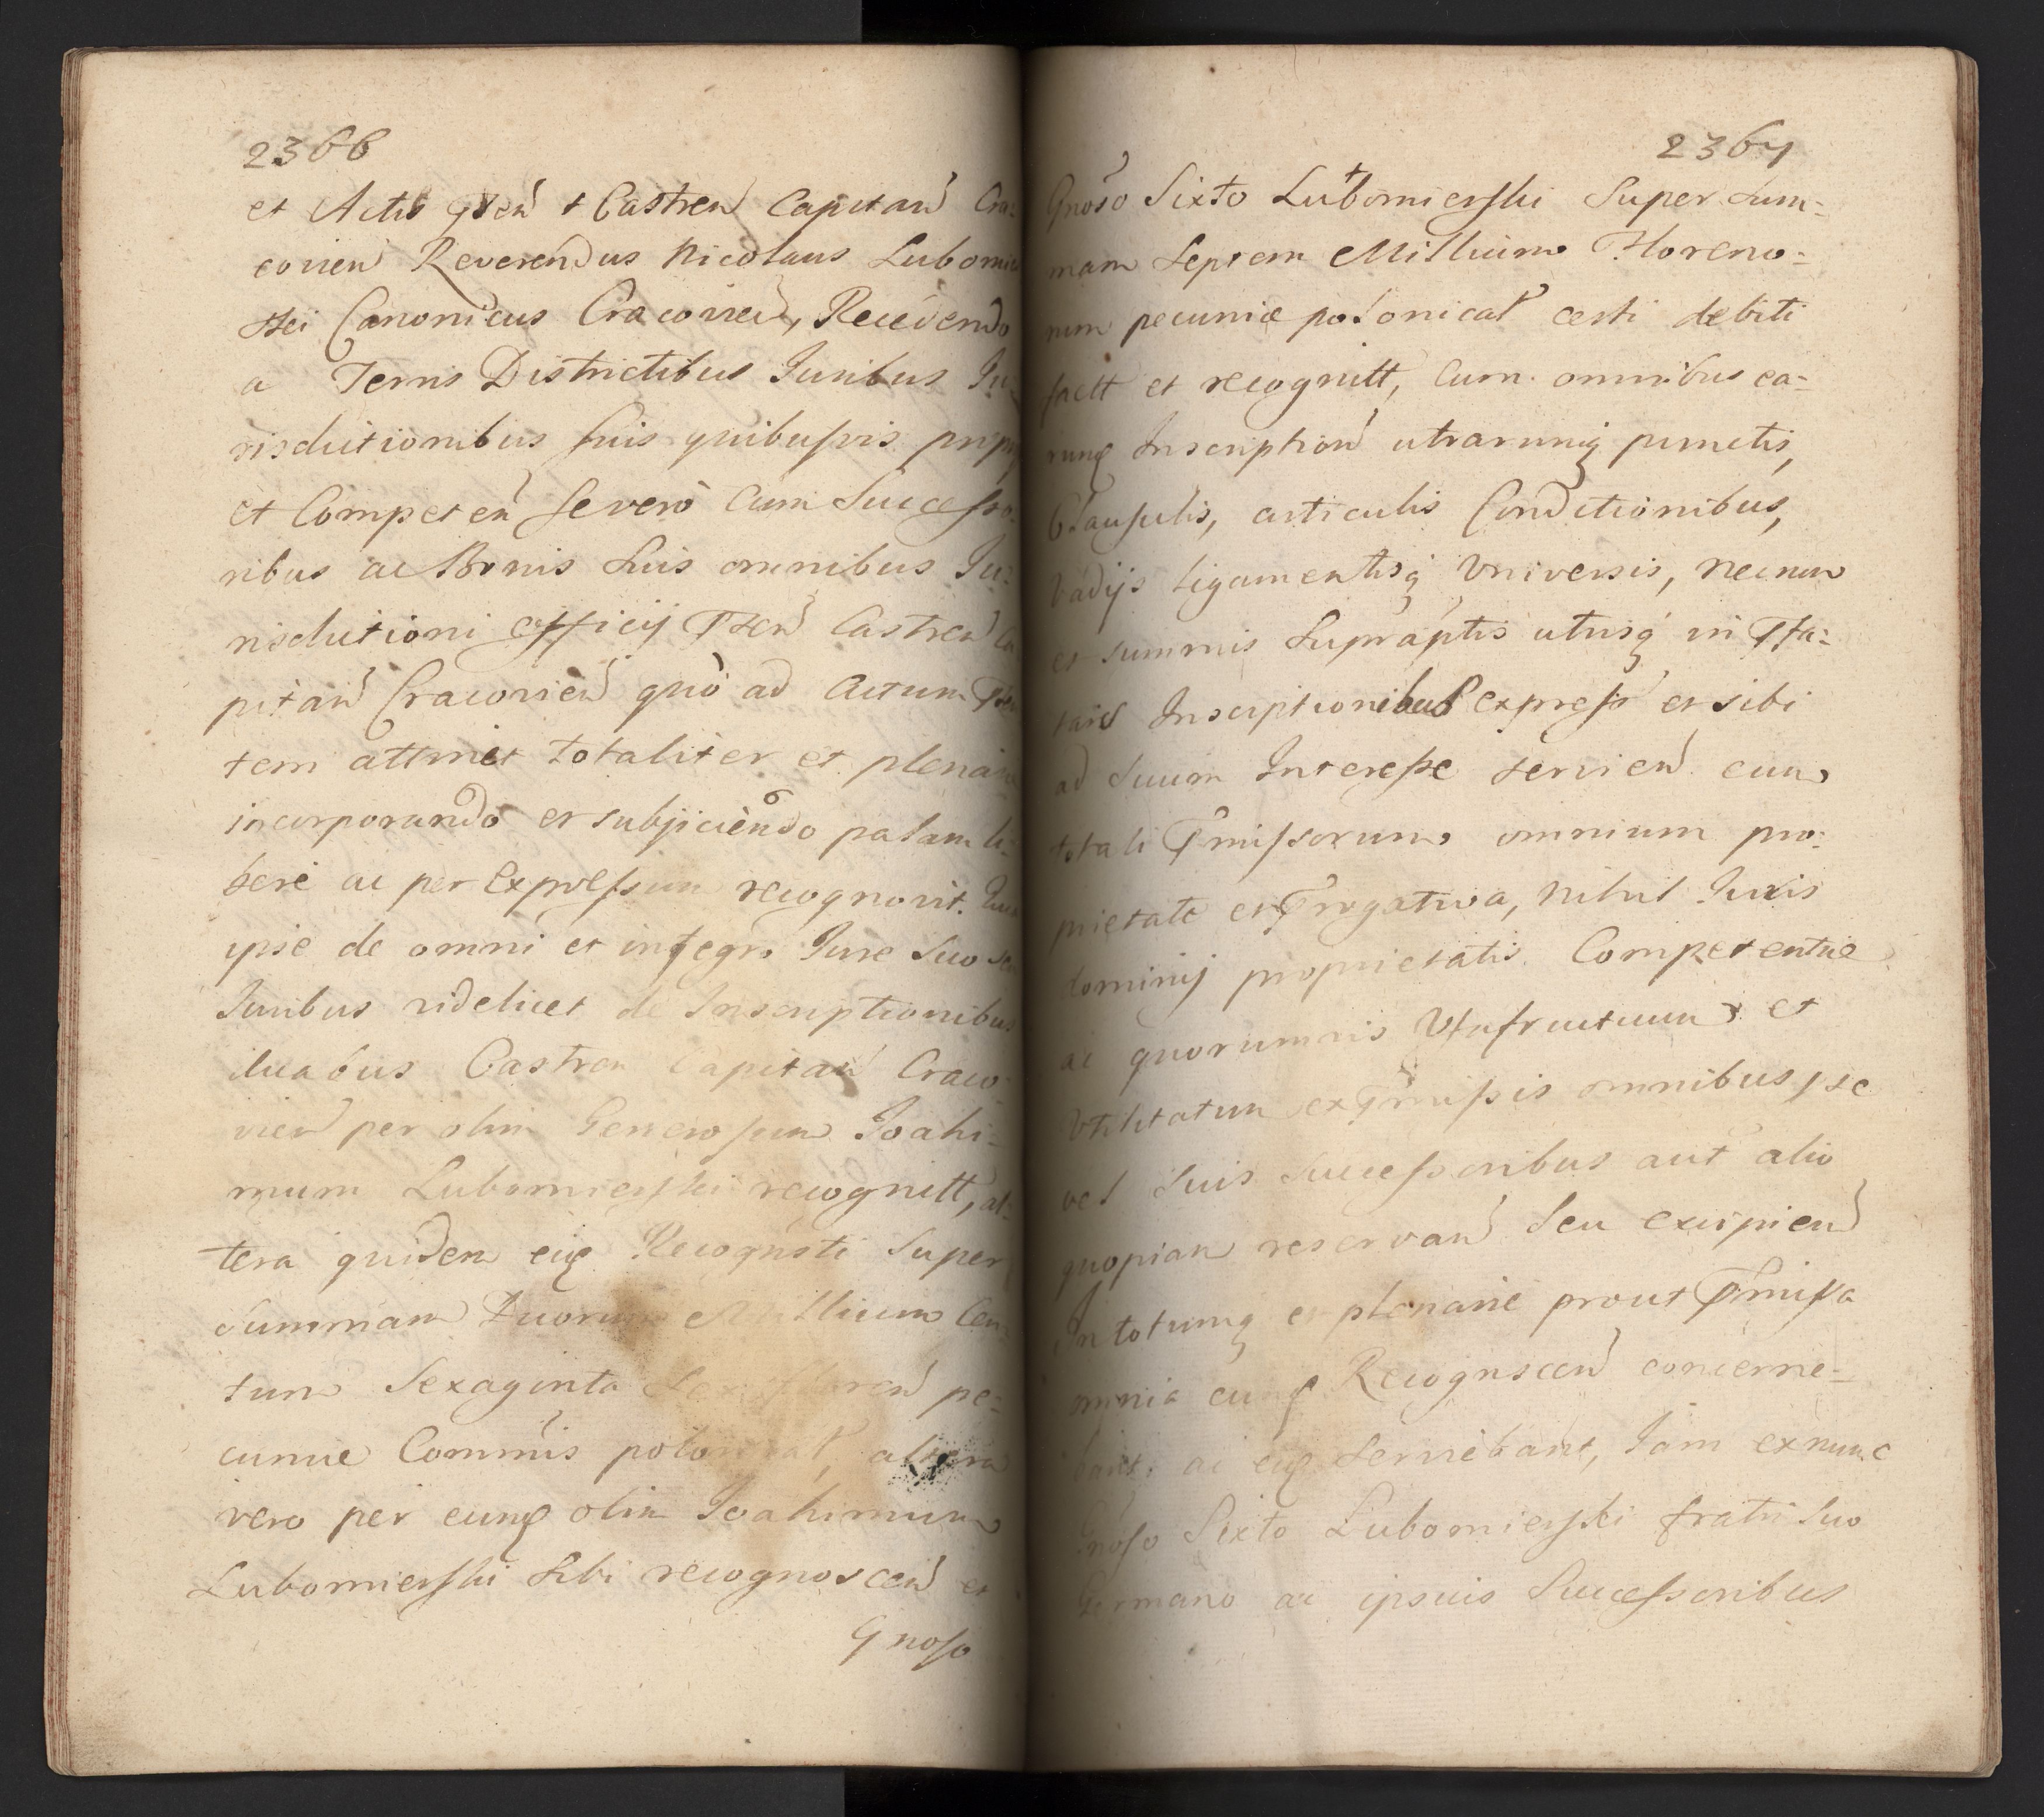 2366
et Actis pñtñ Castreñ Capitañ Cra=
covieñ Reverendus Nicolaus Lubomier
ski Canonicus Cracovieñ, Recedendo
a Terris Districtibus Juribus Ju
risdictionibus suis quibusvis propr
et Competeñ severò cum Successo=
ribus ac Bonis Suis omnibus Ju=
risdictioni officij Pñtñ Castreñ Ca
pitañ Cracovieñ quò ad Actum Pñ
tem attinet totaliter et plenarie
incorporando et subjiciendo palam li=
berè ac per Expressum recognovit. Quia
ipse de omni et integro Jure Suo seu
Juribus videlicet de Inscriptionibus
duabus Castreñ Capitañ Craco=
vieñ per olim Generosum Joahi=
mum Lubomierski recognitt, al=
tera quidem eidẽ Recognsti Super
Summam Duorum Millium Cen=
tum Sexaginta floreñ pe=
cuniæ Commũis polonicał, altera
vero per eundẽ olim Joahimum
Lubomierski Sibi recognosceñ et
Gnoso
2367
Gnoso Sixto Lubomierski Super Sum=
mam Septem Millium Floreno=
rum pecuniæ polonicał certi debiti
factt et recognitt, Cum omnibus ea=
rundẽ Inscriptioñ utrarumq̃ punctis,
Clausulis, articulis Conditionibus,
Vadijs ligamentisq̃ Universis, necnon
et summis Supraptis utrisq̃ in Pfa=
tais Inscriptionibus express et sibi
ad Suum Interesse servieñ cum
totali Pmissorum omnium pro=
prietate et Prrogativa, nihil Juris
dominij proprietatis Competentiæ
ac quorumvis Usufructuum et
Utilitatum ex Pmissis omnibus pse
vel Suis Successoribus aut alio
quopiam reservañ Seu excipieñ
In totumq̃ et plenariè prout Pmissa
omnia eundẽ Recognsceñ concerne=
bant, ac eidẽ Serviebant, Jam exnunc
Gnoso Sixto Lubomierski fratri Suo
Germano ac ipsius Successoribus